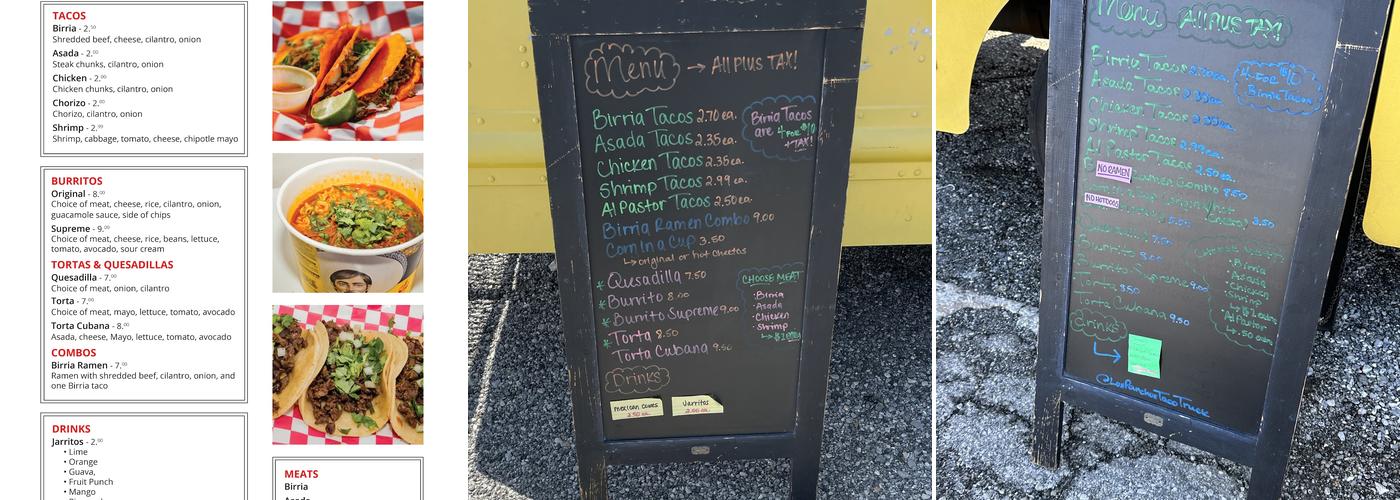 TACOS
Birria - 2.50
Shredded beef, cheese, cilantro, onion
Asada - 2.00
Steak chunks, cilantro, onion
Chicken - 2.00
Chicken chunks, cilantro, onion
Chorizo - 2.00
Chorizo, cilantro, onion
Shrimp - 2.99
Shrimp, cabbage, tomato, cheese, chipotle mayo
BURRITOS
Original - 8.00
Choice of meat, cheese, rice, cilantro, onion,
guacamole sauce, side of chips
Supreme - 9.00
Choice of meat, cheese, rice, beans, lettuce,
tomato, avocado, sour cream
TORTAS & QUESADILLAS
Quesadilla - 7.00
Choice of meat, onion, cilantro
Torta - 7.00
Choice of meat, mayo, lettuce, tomato, avocado
Torta Cubana - 8.00
Asada, cheese, Mayo, lettuce, tomato, avocado
COMBOS
Birria Ramen - 7.00
Ramen with shredded beef, cilantro, onion, and
one Birria taco
DRINKS
Jarritos - 2.00
• Lime
• Orange
• Guava,
• Fruit Punch
• Mango
MEATS
Birria
Menu → All PLUS TAX!
Birria Tacos 2.70 ea.
Asada Tacos 2.35 ea.
Chicken Tacos 2.35 ea.
Shrimp Tacos 2.99 ea.
Al Pastor Tacos 2.50 ea.
Birria Ramen Combo 9.00
Corn In a Cup 3.50
↳ original or hot cheetos
Birria Tacos
are 4 FOR $10
+TAX!
* Quesadilla 7.50
* Burrito 8.00
* Burrito Supreme 9.00
* Torta 8.50
Torta Cubana 9.50
CHOOSE MEAT
• Birria
• Asada
• Chicken
• Shrimp
Drinks
Mexican Cokes
2.50 ea.
Jarritos
2.00 ea.
Menu All PLUS TAX!
Birria Tacos
Asada Tacos 2.35 ea.
Chicken Tacos
Shrimp Tacos 2.99 ea.
Al Pastor Tacos 2.50 ea.
4 FOR $10
Birria Tacos
NO RAMEN
Ramen Combo 8.50
NO HOTDOGS
3.50
Burrito 8.00
Burrito Supreme 9.00
Torta 8.50
Torta Cubana 9.50
• Birria
• Asada
• Chicken
• Shrimp
• Al Pastor
↳ .50 extra
Drinks
@LosPanchosTacoTruck